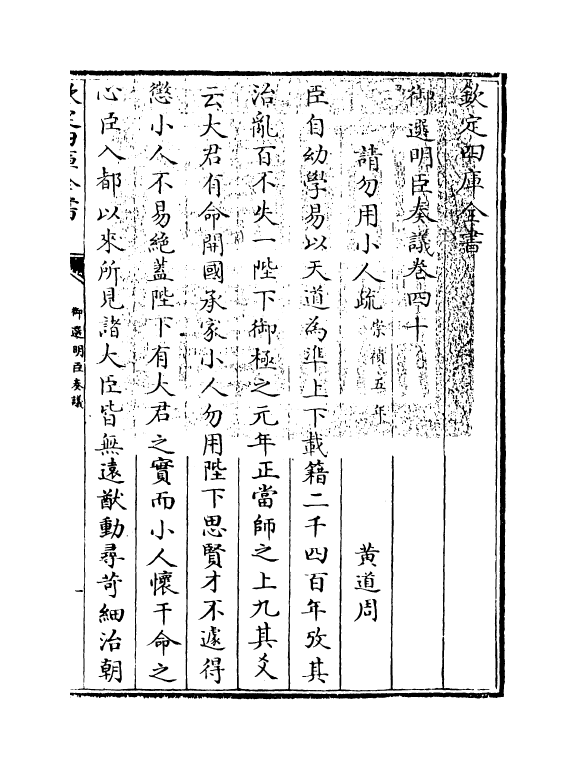 欽定四庫全書
御選明臣奏議卷四十
請勿用小人疏 崇禎五年 黃道周
臣自幼學易以天道為準上下載籍二千四百年攷其
治亂百不失一陛下御極之元年正當師之上九其爻
云大君有命開國承家小人勿用陛下思賢才不遽得
懲小人不易絶蓋陛下有大君之實而小人懷干命之
心臣入都以來所見諸大臣皆無遠猷動尋苛細治朝
欽定四庫全書
御選明臣奏議
一